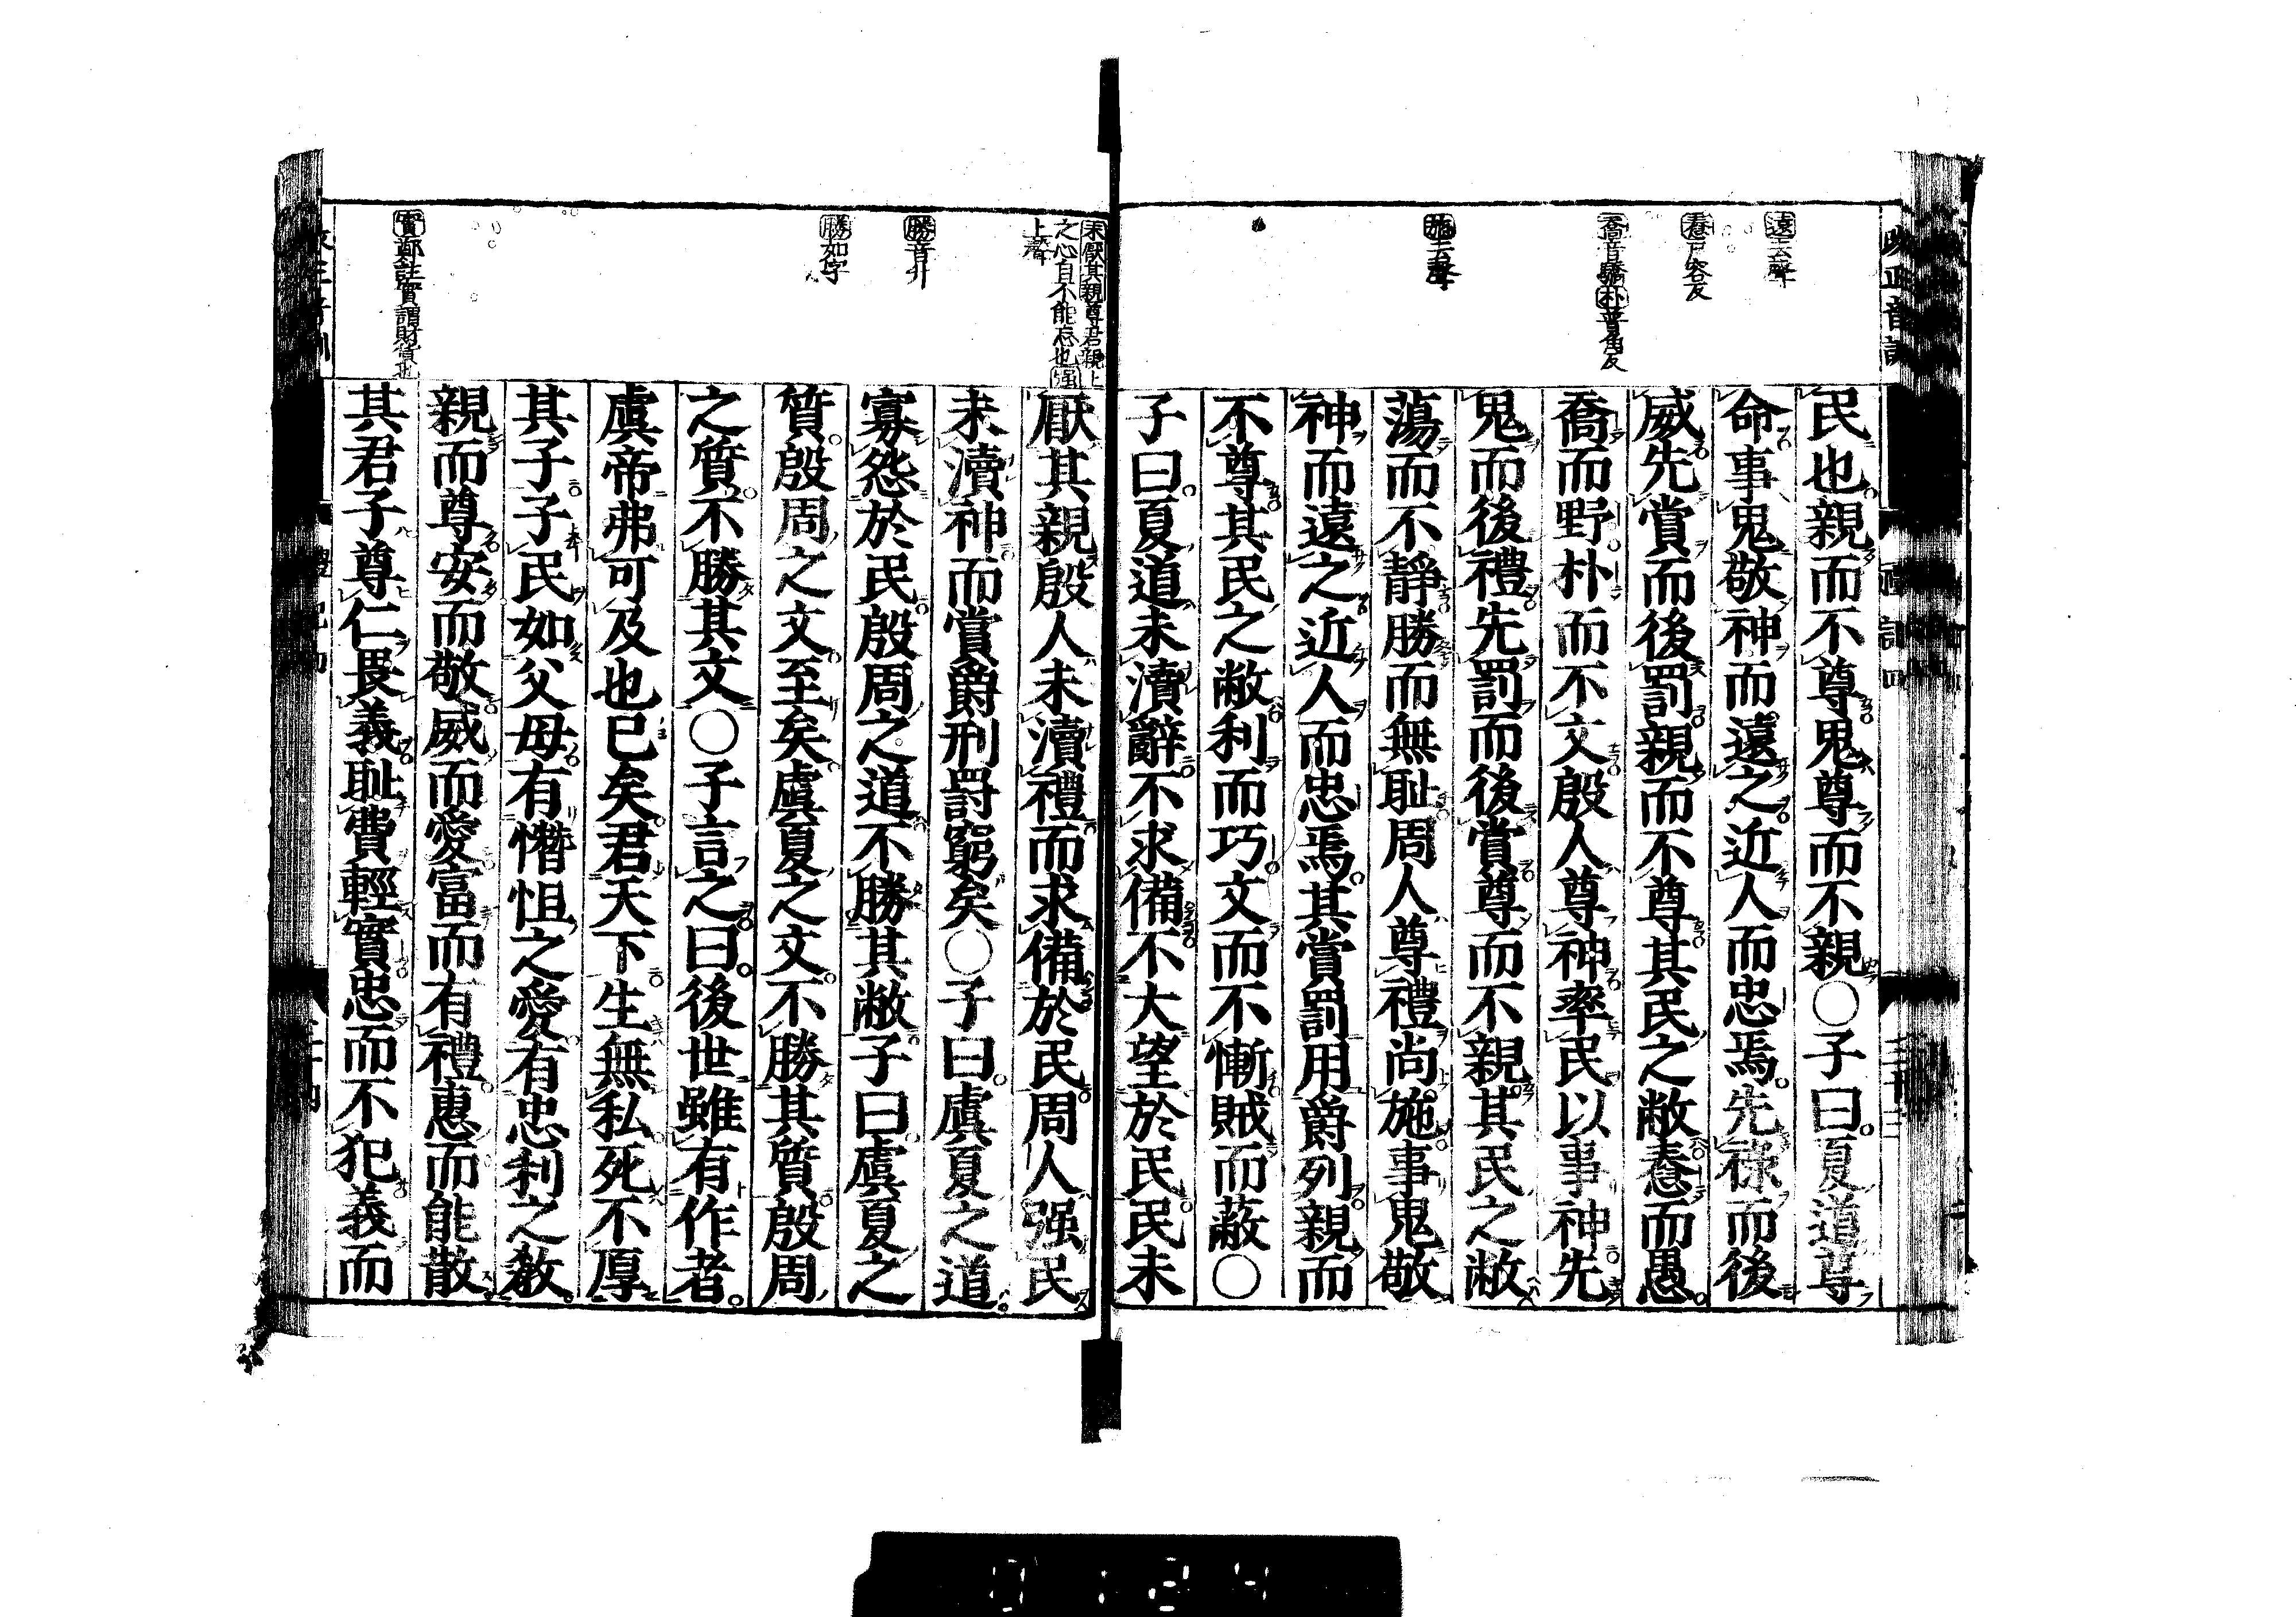 遠去聲
惷尸容反
喬音驕朴普角反
施去聲
民也親而不尊鬼尊而不親〇子曰夏道尊
命事鬼敬神而遠之近人而忠焉先祿而後
威先賞而後罰親而不尊其民之敝惷而愚
喬而野朴而不文殷人尊神率民以事神先
鬼而後禮先罰而後賞尊而不親其民之敝
蕩而不靜勝而無耻周人尊禮尚施事鬼敬
神而遠之近人而忠焉其賞罰用爵列親而
不尊其民之敝利而巧文而不慚賊而蔽〇
子曰夏道未瀆辭不求備不大望於民民未
未厭其親尊君親上
之心自不能忘也强
上聲
勝音升
勝如字
實鄭註實謂財貨也
厭其親殷人未瀆禮而求備於民周人强民
未瀆神而賞爵刑罰窮矣〇子曰虞夏之道
寡怨於民殷周之道不勝其敝子曰虞夏之
質殷周之文至矣虞夏之文不勝其質殷周
之質不勝其文〇子言之曰後世雖有作者
虞帝弗可及也已矣君天下生無私死不厚
其子子民如父母有憯怛之愛有忠利之敎
親而尊安而敬威而愛富而有禮惠而能散
其君子尊仁畏義耻費輕實忠而不犯義而